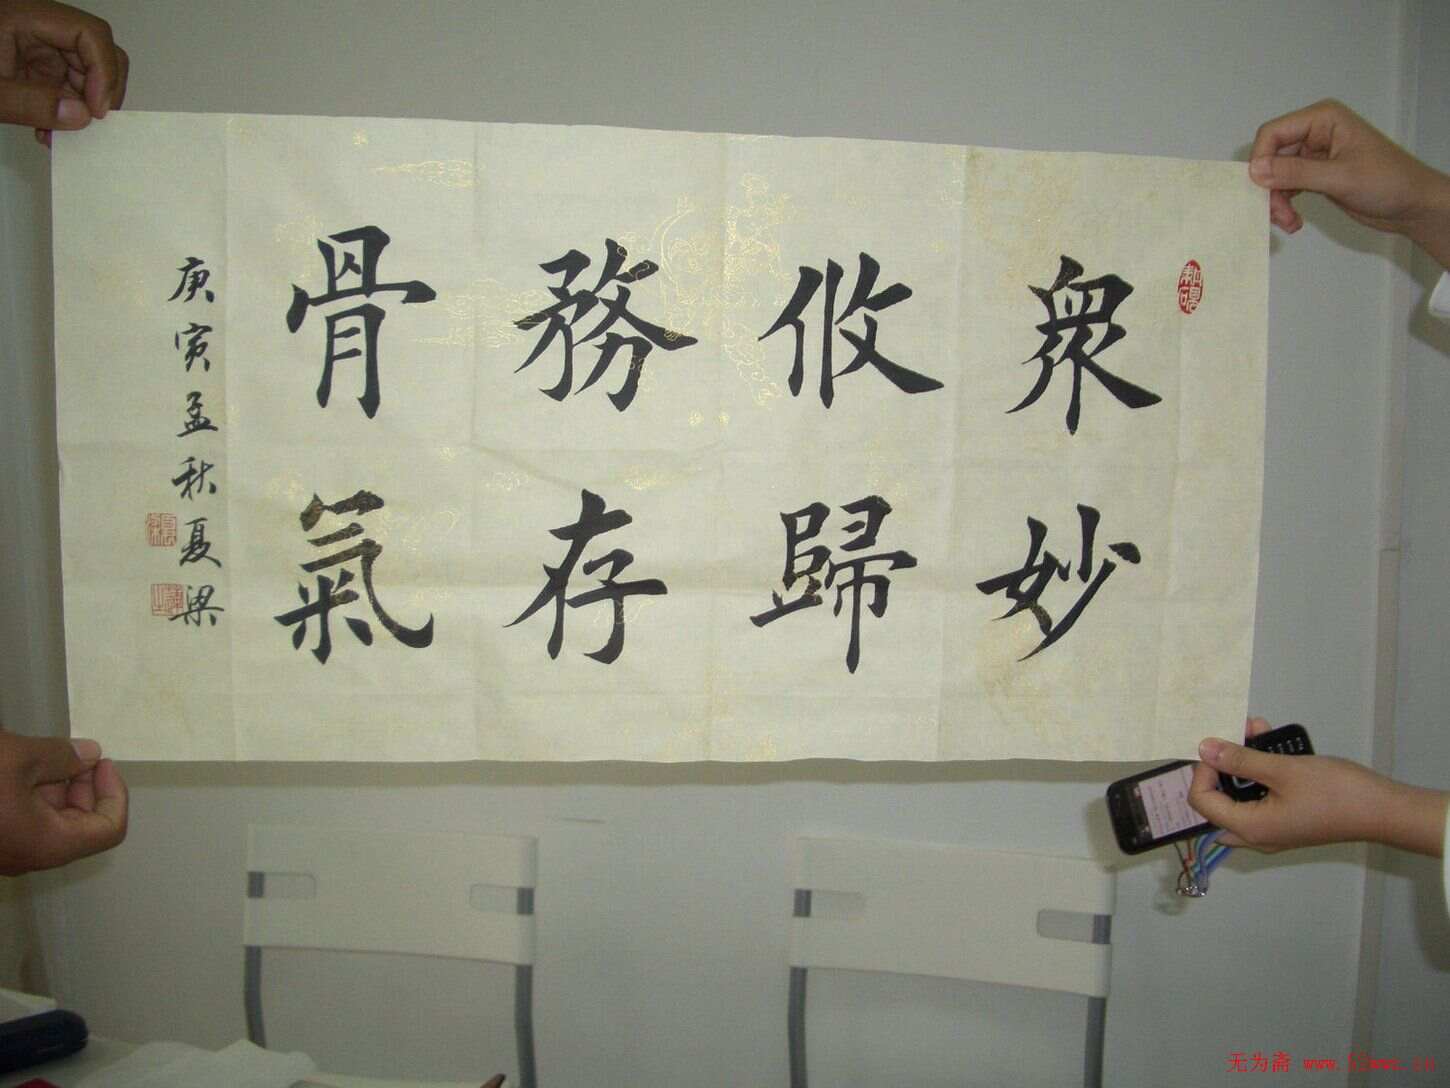 眾妙
攸歸
務存
骨氣
庚寅孟秋夏梁
无为斋